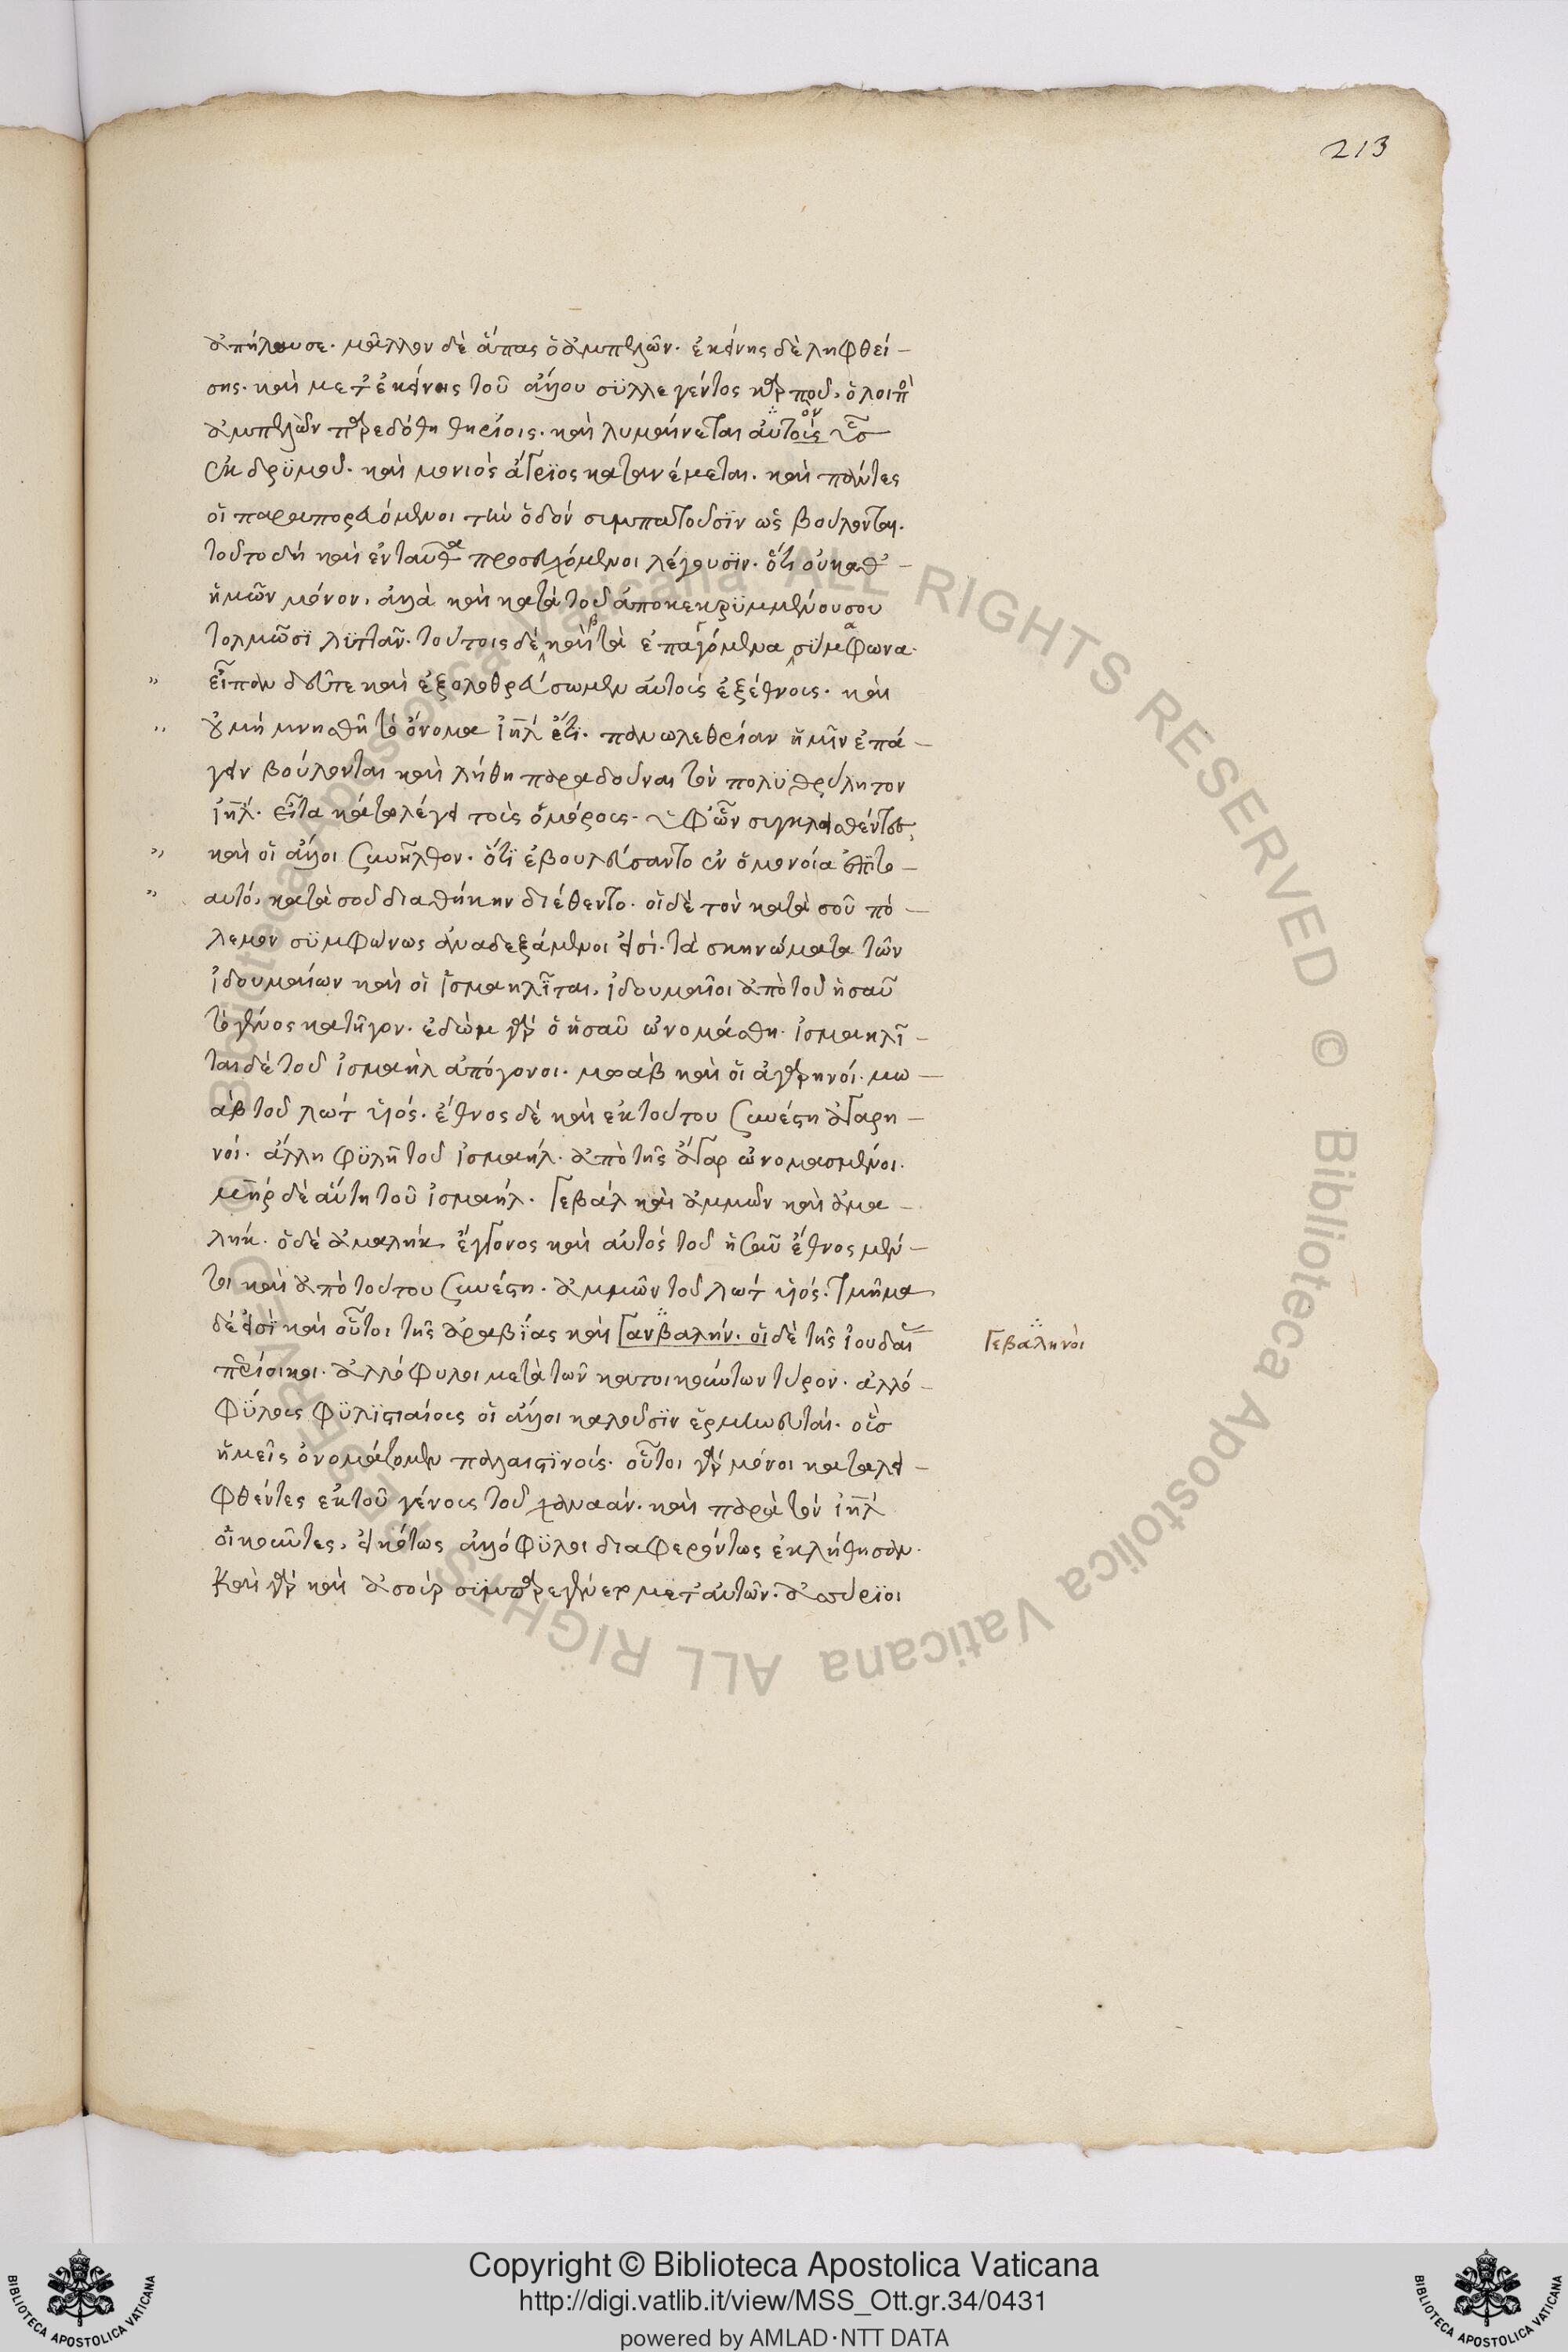 213
ἀπήλαυσε. μᾶλλον δὲ ἅπας ὁ ἀμπελών. ἐκείνης δὲ ληφθεί-
σης. καὶ μετ ἐκείνης τοῦ ἄλλου συλλεγέντος καρποῦ, ὁ λοιπὸ
ἀμπελὼν παρεδόθη θηρίοις. καὶ λυμαίνεται αὐτοῖς ὗς
ἐκ δρυμοῦ. καὶ μονιὸς ἄγριος κατανέμεται. καὶ πάντες
οἱ παραπορευόμενοι τὴν ὁδόν συμπατοῦσιν ὡς βούλονται.
τοῦτο δὴ καὶ ἐνταῦθα προσευχόμενοι λέγουσιν. ὅτι οὐ καθ -
ἡμῶν μόνον, ἀλλὰ καὶ κατὰ τοῦ ἀποκεκρυμμένου σου
τολμῶσι λυττᾶν. τούτοις δὲ καὶ τὰ ἐπαγόμενα σύμφωνα.
" εἶπαν δεῦτε καὶ ἐξολοθρεύσωμεν αὐτοὺς ἐξ ἔθνους. καὶ
" οὐ μὴ μνησθῇ τὸ ὄνομα ἰηλ ἔτι. πανωλεθρίαν ἡμῖν ἐπά-
γειν βούλονται καὶ λήθη παραδοῦναι τὸν πολυθρύλητον
ἰηλ. εἶτα καταλέγει τοὺς ὁμόρους. ὑφ ὧν συγκλεισθέντες,
" καὶ οἱ ἄλλοι συνῆλθον. ὅτι ἐβουλεύσαντο ἐν ὁμονοία ἐπὶ το-
" αυτό, κατὰ σοῦ διαθήκην διέθεντο. οἱ δὲ τὸν κατὰ σοῦ πό-
λεμον συμφώνως ἀναδεξάμενοι εἰσί. τὰ σκηνώματα τῶν
ἰδουμαίων καὶ οἱ ἰσμαηλῖται, ἰδουμαῖοι ἀπὸ τοῦ ἡσαῦ
τὸ γένος κατῆγον. ἐδὼμ γὰρ ὁ ἡσαῦ ὠνομάσθη. ἰσμαηλῖ-
ται δὲ τοῦ ἰσμαὴλ ἀπόγονοι. μωαβ καὶ οἱ ἀγαρηνοί. μω-
ὰβ τοῦ λωτ υἱός. ἔθνος δὲ καὶ ἐκ τούτου συνέστη ἀγαρη-
νοί. ἄλλη φυλὴ τοῦ ἰσμαήλ. ἀπὸ τῆς ἄγαρ ὠνομασμένοι.
μηρ δὲ αὕτη τοῦ ἰσμαήλ. Γεβάλ καὶ ἀμμὼν καὶ ἀμα-
λήκ. ὁ δὲ ἀμαλήκ ἔγγονος καὶ αὐτὸς τοῦ ἡσαῦ ἔθνος μέν-
τοι καὶ ἀπὸ τούτου συνέστη. ἀμμὼν τοῦ λωτ υἱός. τμῆμα
δέ εἰσὶ καὶ οὗτοι τῆς ἀραβίας καὶ Γανβαλήν. οἱ δὲ τῆς ἰουδαί
περίοικοι. ἀλλόφυλοι μετὰ τῶν κατοικούντων τύρον. ἀλλο-
φύλους φυλιστιαίους οἱ ἄλλοι καλοῦσιν ἑρμηνευταί. οὓς
ἡμεῖς ὀνομάζομεν παλαιστινούς. οὗτοι γὰρ μόνοι καταλει-
φθέντες ἐκ τοῦ γένους τοῦ χαναάν. καὶ παρὰ τὸν ἰηλ
οἰκοῦντες, εἰκότως ἀλλόφυλοι διαφερόντως ἐκλήθησαν.
Καὶ γὰρ καὶ ἀσοὺρ συμπαρεγένετο μετ αὐτῶν. ἀσύριοι
Γεβαληνὸι
Copyright © Biblioteca Apostolica Vaticana
http://digi.vatlib.it/view/MSS_Ott.gr.34/0431
powered by AMLAD·NTT DATA